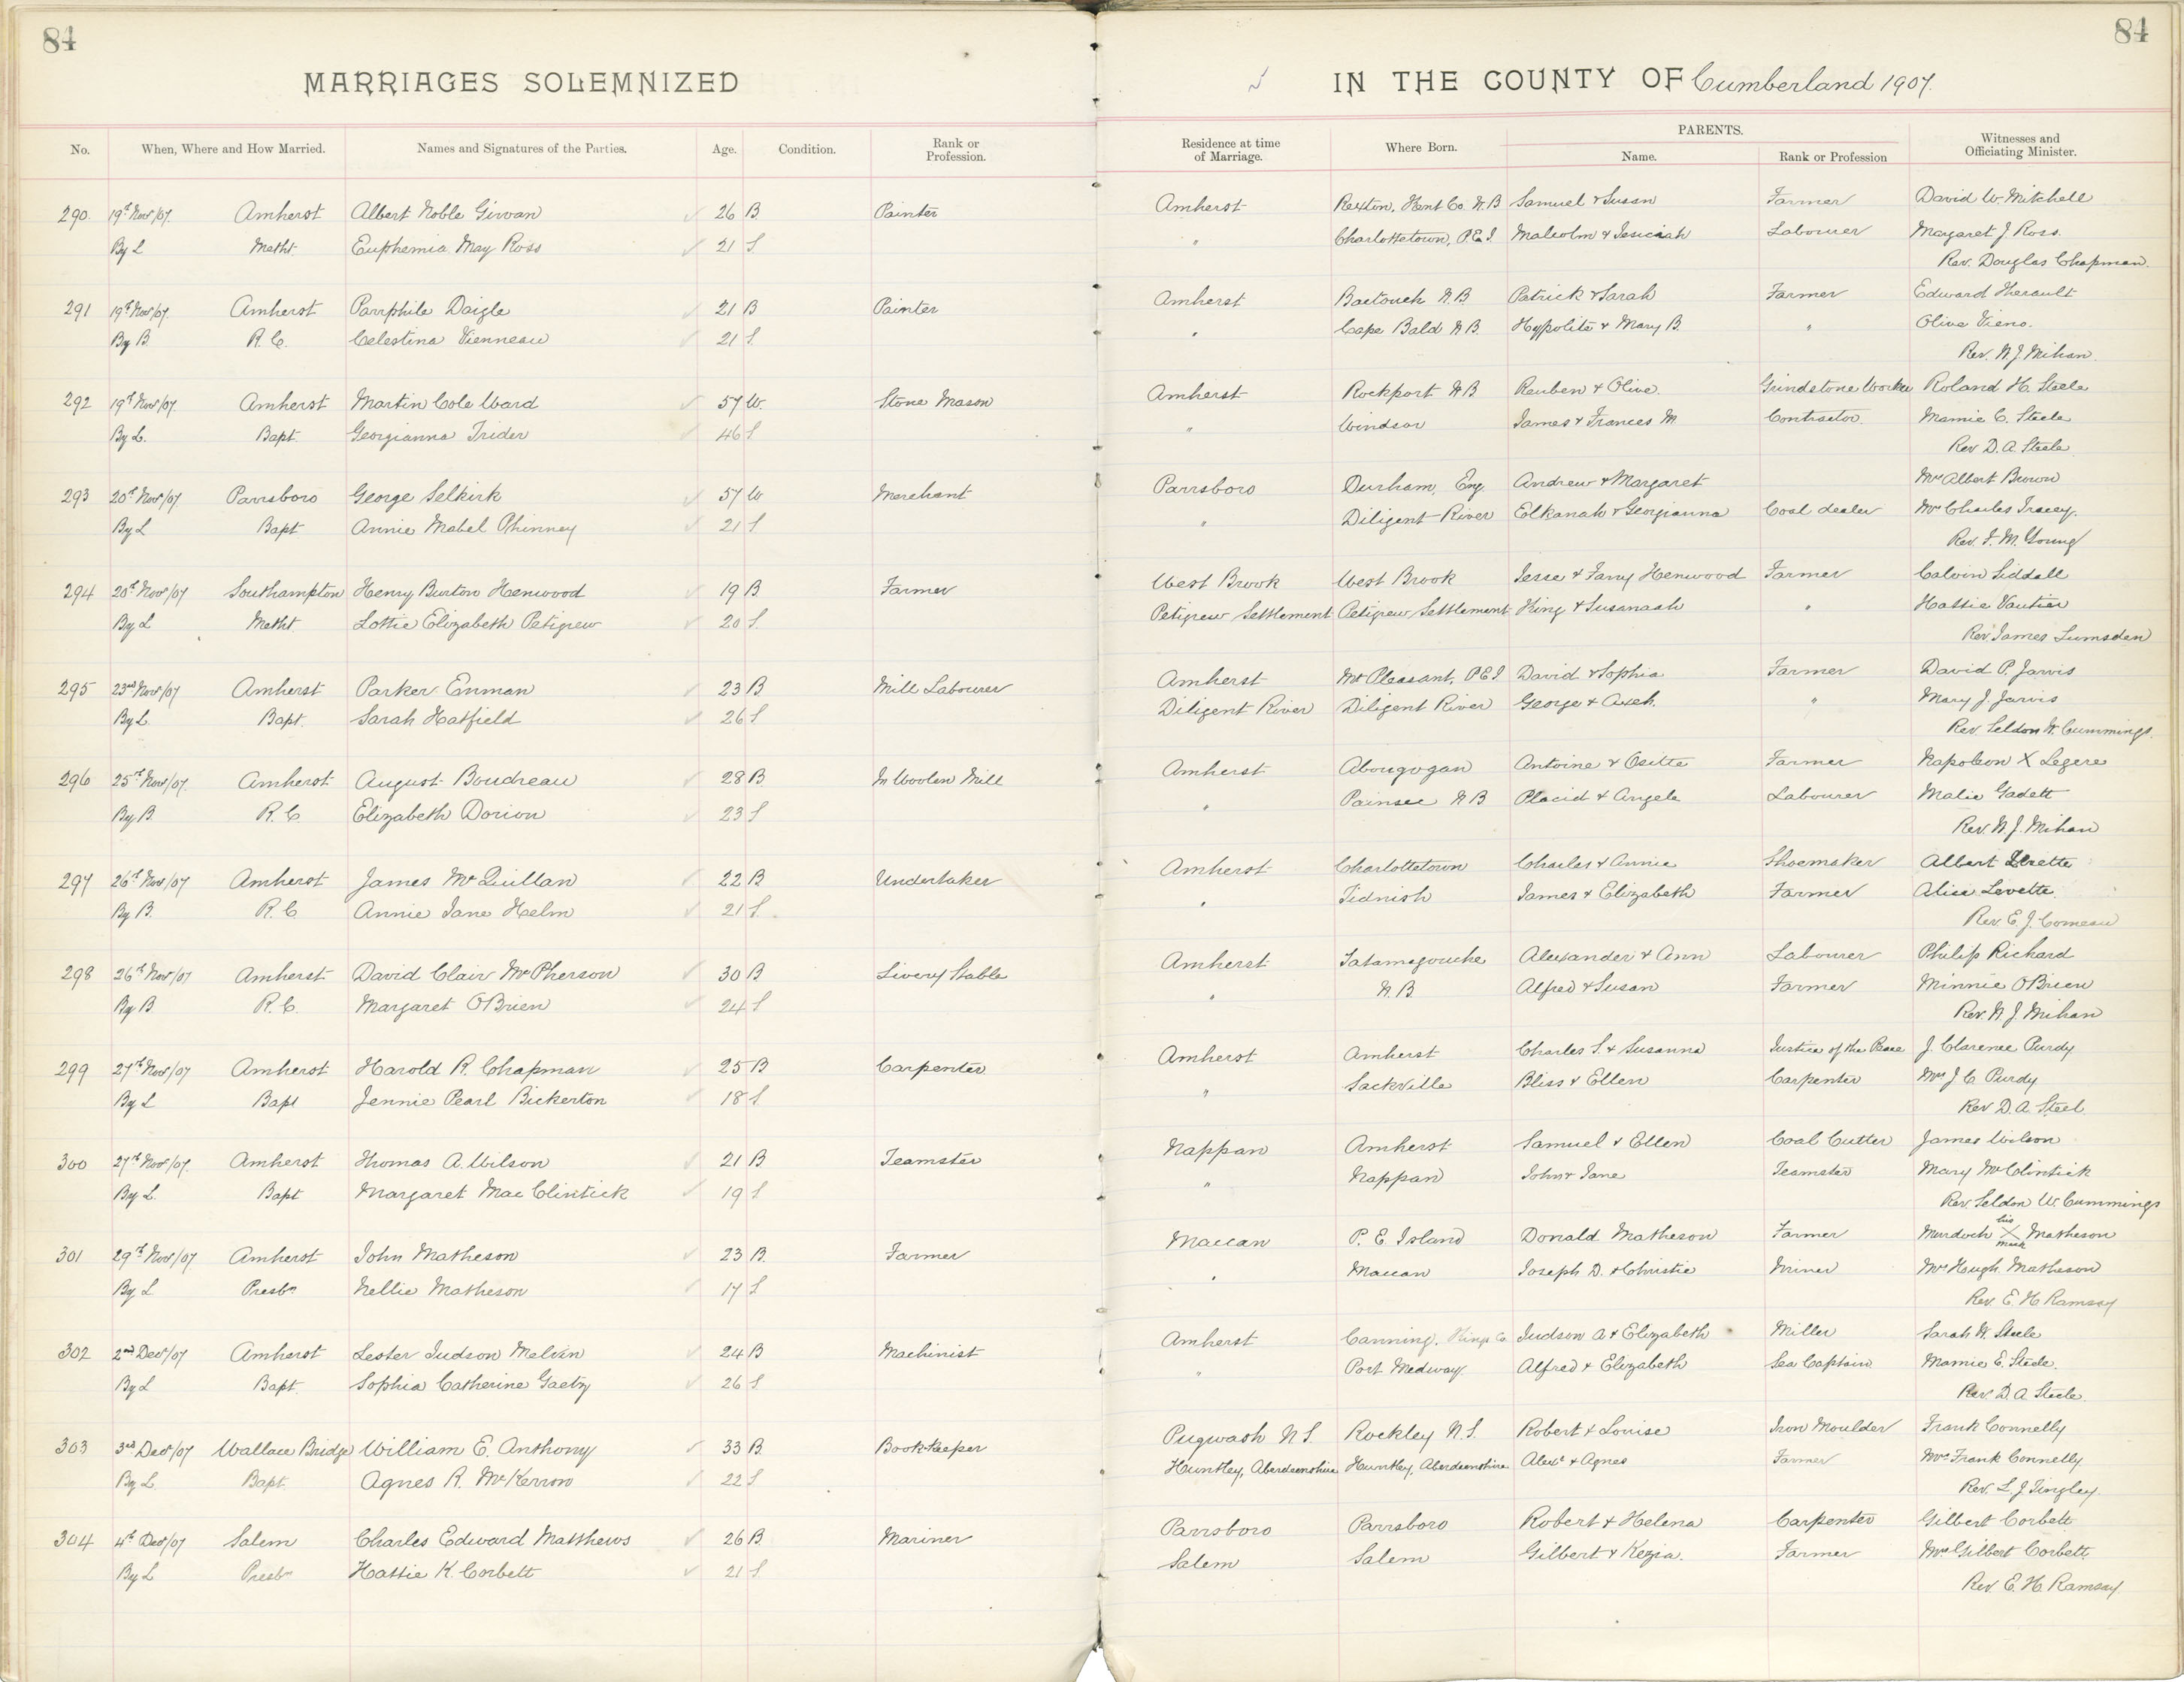 84
84
MARRIAGES SOLEMNIZED
IN THE COUNTY OF Cumberland 1907.
No. When, Where and How Married. Names and Signatures of the Parties. Age. Condition. Rank or Profession. Residence at time of Marriage. Where Born. PARENTS. Name. Rank or Profession Witnesses and Officiating Minister.
290. 19th Nov/07. Amherst Albert Noble Girvan 26 B Painter Amherst Rexton, Kent Co. N.B Samuel & Susan Farmer David W. Mitchell
By L Metht. Euphemia May Ross 21 S. " Charlottetown, P.E.I. Malcolm & Labourer Margaret J. Ross.
Rev. Douglas Chapman.
291 19th Nov/07 Amherst Daigle 21 B Painter Amherst Buctouch N.B. Patrick & Sarah Farmer Edward Therault
By B. R.C. Celestina Vienneau 21 S. " Cape Bald N.B. Hyppolite & Mary B. " Olive Vieno.
Rev. N.J. Mihan.
292 19th Nov/07. Amherst Martin Cole Ward 57 W. Stone Mason Amherst Rockport N.B Reuben & Olive. Grindstone Worker Roland H. Steele
By L. Bapt. Georgianna Trider 46 S " Windsor James & Frances M Contractor. Mamie C. Steele
Rev D.A. Steele
293 20th Nov/07. Parrsboro George Selkirk 57 W Merchant Parrsboro Durham, Eng. Andrew & Margaret Mrs Albert Brown
By L Bapt Annie Mabel Phinney 21 S. " Diligent River Elkanah & Georgianna Coal dealer Mr Charles Tracey.
Rev. F.M. Young
294 20th Nov/07 Southampton Henry Burton Henwood 19 B. Farmer West Brook West Brook Jesse & Fanny Henwood Farmer Calvin Siddall
By L Metht. Lottie Elizabeth Petigrew 20 S. Petigrew Settlement Petigrew Settlement King & Susanaah " Hattie Vautier
Rev James Lumsden
295 23rd Nov/07 Amherst Parker Enman 23 B Mill Labourer Amherst Mt Pleasant, P.E.I David & Sophia Farmer David P. Jarvis
By L. Bapt. Sarah Hatfield 26 S Diligent River Diligent River George & " Mary J. Jarvis
Rev. Seldon W. Cummings.
296 25th Nov/07. Amherst August Boudreau 28 B. In Woolen Mill Amherst Abougogan Antoine & Ositte Farmer Napoleon X Legere
By B. R.C Elizabeth Dorion 23 S " Painsec N B Placid & Angele Labourer Malie Gadett
Rev. N.J. Mihan
297 26th Nov/07 Amherst James McQuillan 22 B Undertaker Amherst Charlottetown Charles & Annie Shoemaker Albert
By B. R.C Annie Jane Helm 21 S. " Tidnish James & Elizabeth Farmer Alice Levette.
Rev. E.J. Comeau
298 26th Nov/07 Amherst David Clair McPherson 30 B Livery Stable Amherst Tatamagouche Alexander & Ann Labourer Philip Richard
By B R.C. Margaret O'Brien 24 S " N.B. Alfred & Susan Farmer Minnie OBrien
Rev. N J. Mihan
299 27th Nov/07 Amherst Harold R. Chapman 25 B Carpenter Amherst Amherst Charles S. & Susanna Justice of the Peace J. Clarence Purdy
By L Bapt Jennie Pearl Bickerton 18 S. " Sackville Bliss & Ellen Carpenter Mrs J C Purdy
Rev D.A. Steel.
300 27th Nov/07. Amherst Thomas A. Wilson 21 B Teamster Nappan Amherst Samuel & Ellen Coal Cutter James Wilson
By L. Bapt Margaret MacClintick 19 S " Nappan John & Jane Teamster Mary McClintick
Rev. Seldon W. Cummings
301 29th Nov/07 Amherst John Matheson 23 B. Farmer Maccan P. E. Island Donald Matheson Farmer Murdoch his X mark Matheson
By L Presbn Nellie Matheson 17 S " Maccan Joseph D. & Christie Miner Mrs Hugh Matheson
Rev. E.H. Ramsay
302 2nd Dec/07 Amherst Lester Judson Melvin 24 B Machinist Amherst Canning, Kings Co. Judson A & Elizabeth Miller Sarah W. Steele
By L Bapt. Sophia Catherine Gaetz 26 S " Port Medway. Alfred & Elizabeth Sea Captain Mamie E. Steele.
Rev. D.A Steele.
303 3rd Dec/07 Wallace Bridge William E. Anthony 33 B. Book-keeper Pugwash N.S. Rockley N.S. Robert & Louise Iron Moulder Frank Connelly
By L Bapt. Agnes R. McKerron 22 S. Huntley, Aberdeenshire Huntley, Aberdeenshire Alexr & Agnes Farmer Mrs Frank Connelly
Rev. L.J. Tingley.
304 4th Dec/07 Salem Charles Edward Matthews 26 B. Mariner Parrsboro Parrsboro Robert & Helena Carpenter Gilbert Corbett
By L Presbn Hattie K. Corbett 21 S. Salem Salem Gilbert & Kezia. Farmer Mrs Gilbert Corbett
Rev. E.H. Ramsay